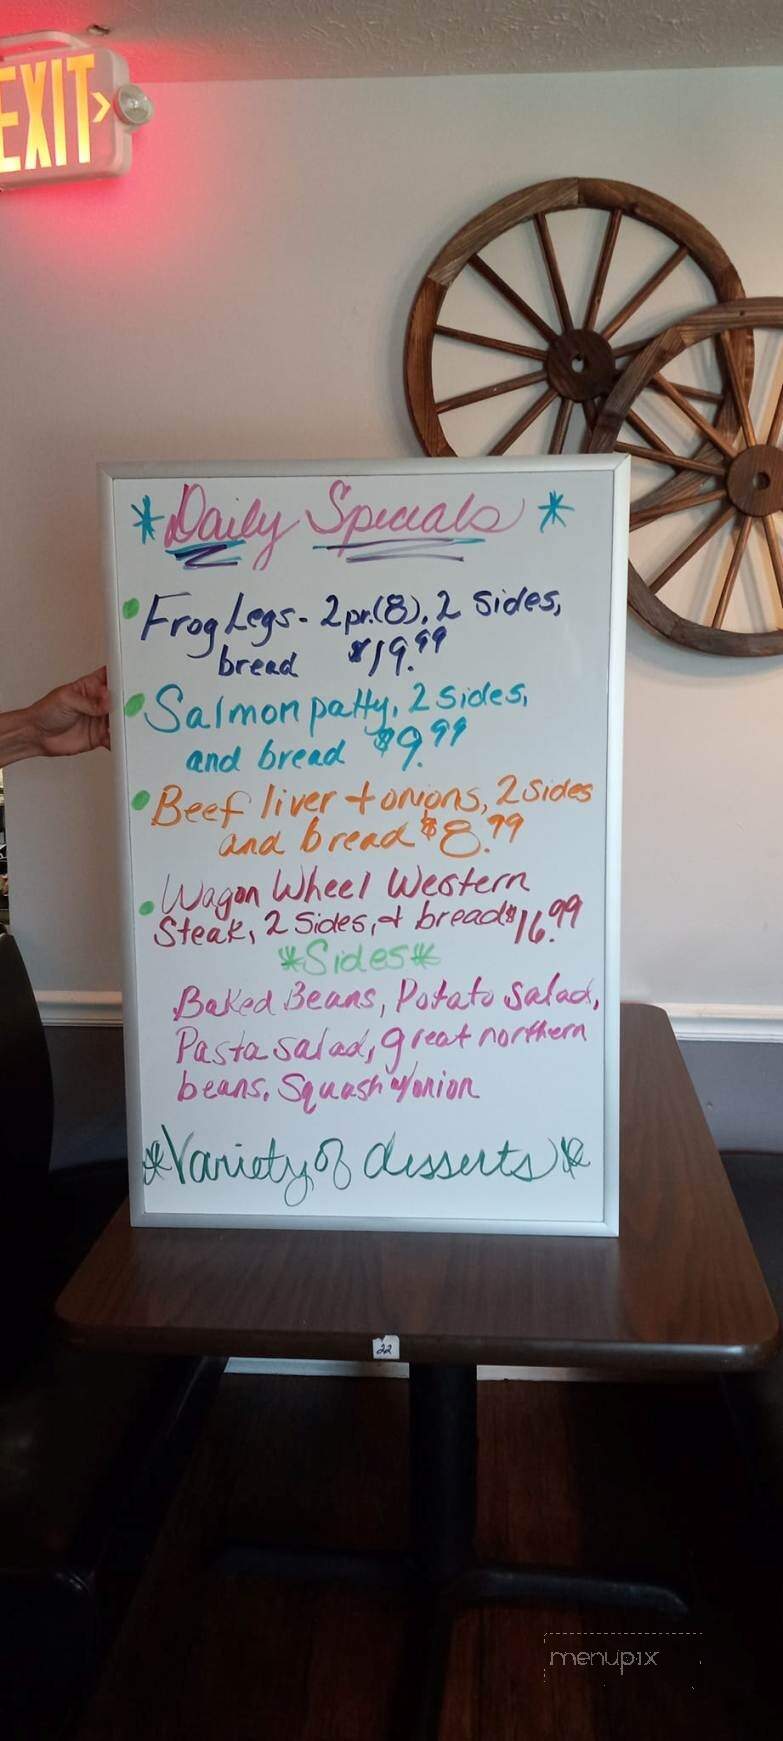 EXIT
*Daily Specials*
Frog Legs - 2pr.(8), 2 sides,
bread $19.99
Salmon patty, 2 sides,
and bread $9.99
Beef liver + onions, 2 sides
and bread $8.99
Wagon Wheel Western
Steak, 2 Sides, + bread $16.99
*Sides*
Baked Beans, Potato Salad,
Pasta salad, great northern
beans, Squash w/onion
*Variety of desserts*
22
menupix